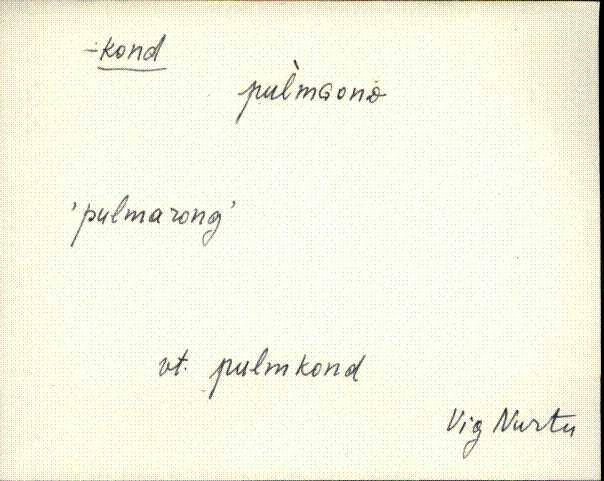 -kond
pùlmGonD
'pulmarong'
vt. pulmkond
Vig Nurtu